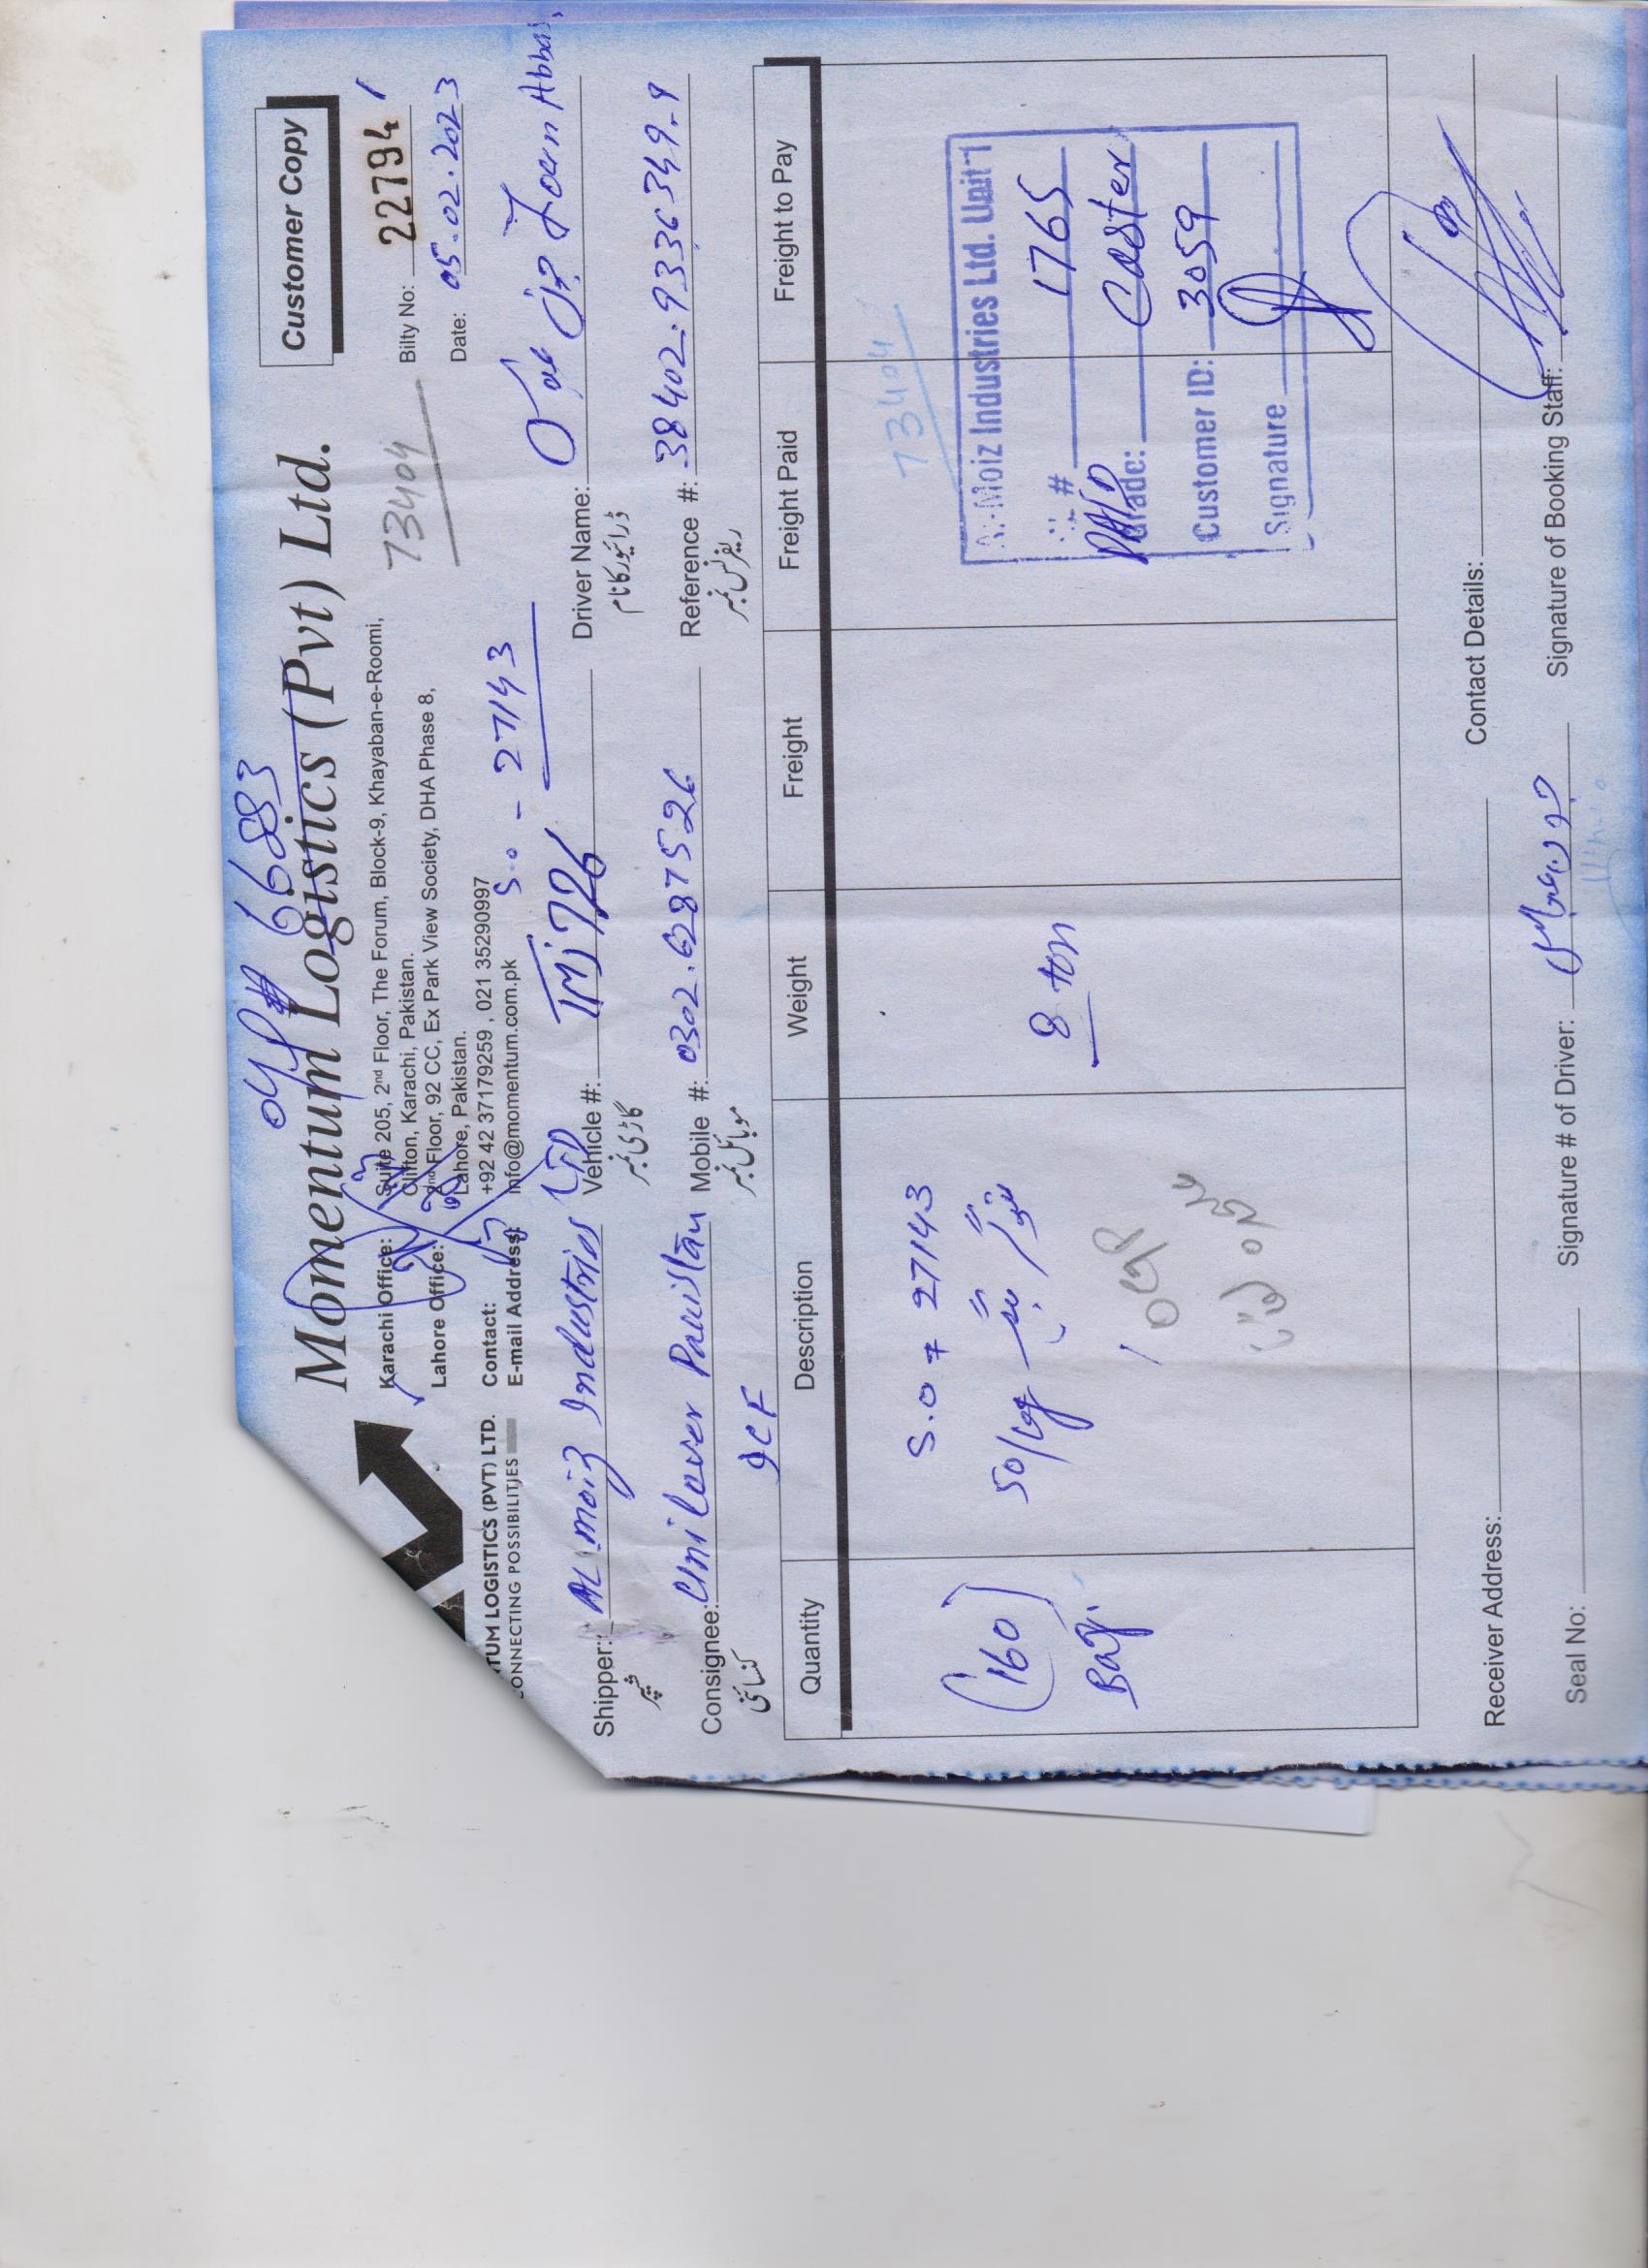 Customer Copy
Momentum Logistics (Pvt) Ltd.
6683
TUM LOGISTICS (PVT) LTD.
CONNECTING POSSIBILITIES
Karachi Office: Suite 205, 2nd Floor, The Forum, Block-9, Khayaban-e-Roomi,
Clifton, Karachi, Pakistan.
Lahore Office: 2nd Floor, 92 CC, Ex Park View Society, DHA Phase 8,
Lahore, Pakistan.
Contact: +92 42 37179259 , 021 35290997
E-mail Address: info@momentum.com.pk
73404
Bilty No: 22794
Date: 05-02-2023
S.o - 27143
Shipper: AL moiz Industries LTD Vehicle #: TMJ 726 Driver Name:
شپر گاڑی نمبر ڈرائیور کا نام
Consignee: Unilever Pakistan Mobile #: 0302.6287526 Reference #: 38402.9336349-9
کنسائنی موبائل نمبر ریفرنس نمبر
Quantity Description Weight Freight Freight Paid Freight to Pay
(160) Bags
S.O # 27143
50/kg
8 ton
73404
Al-Moiz Industries Ltd. Unit-1
# 1765
PAID
Grade: Caster
Customer ID: 3059
Signature
Receiver Address: Contact Details:
Seal No: Signature # of Driver: Signature of Booking Staff: